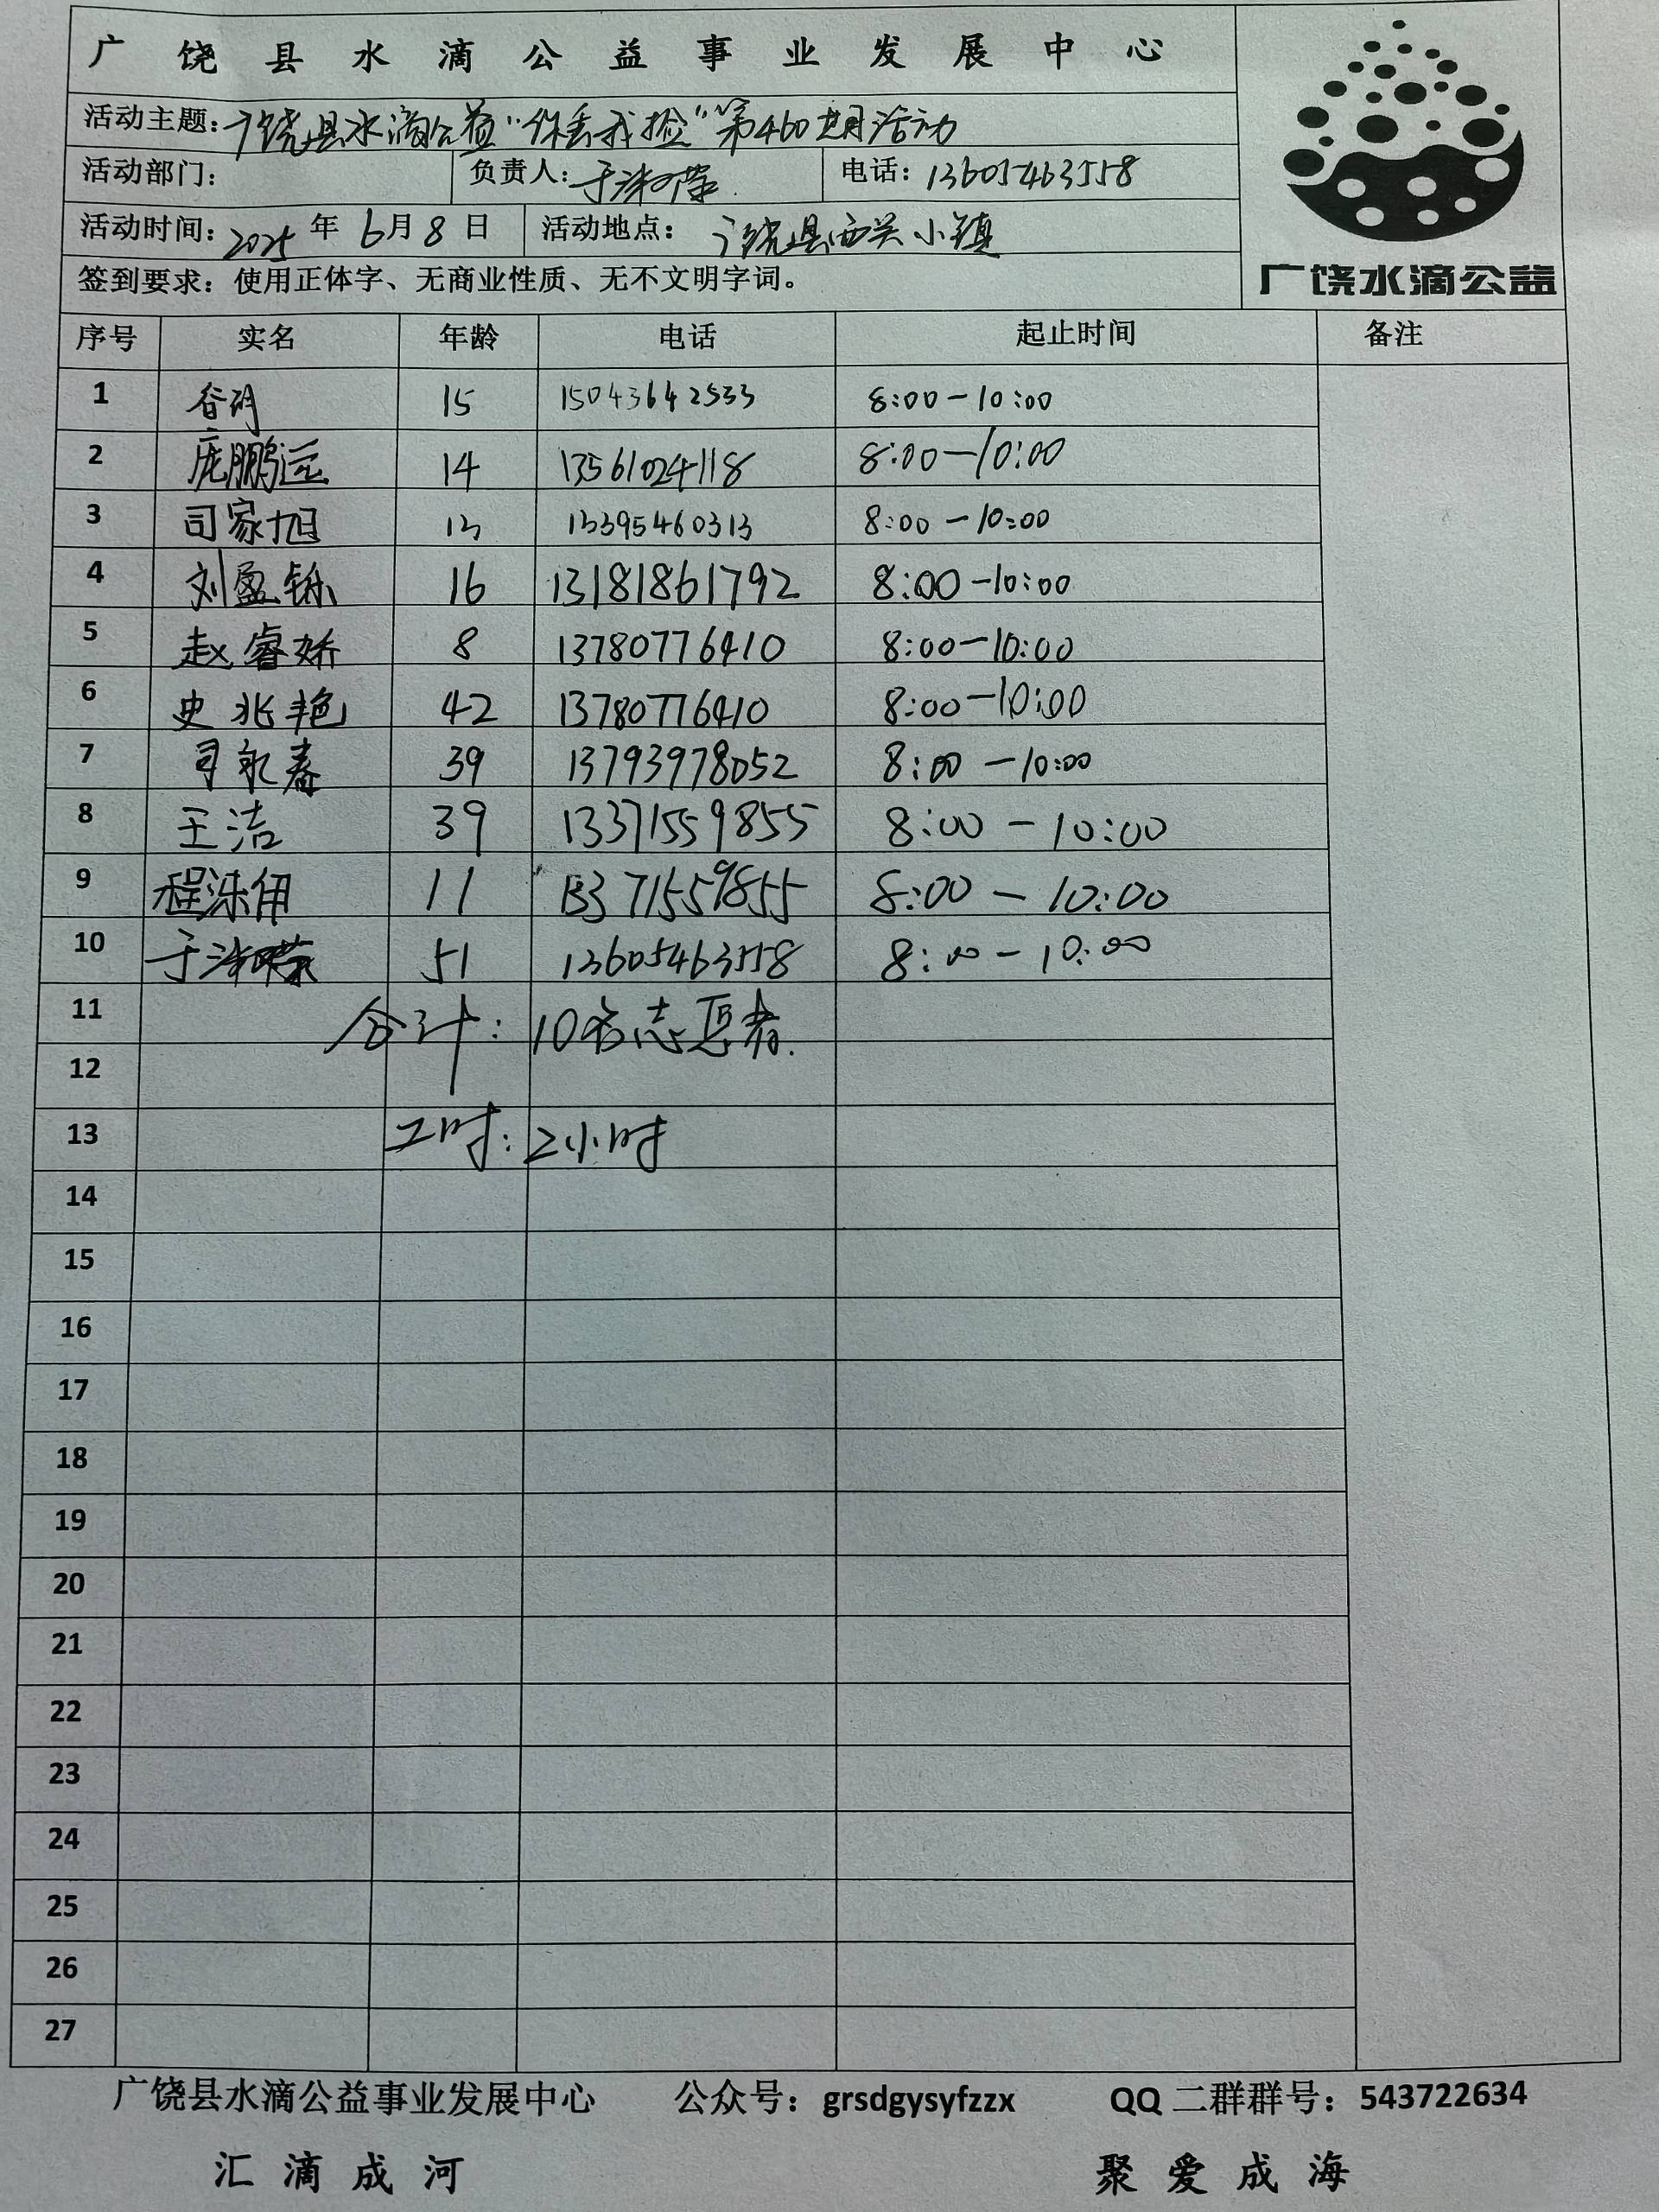 广饶县水滴公益事业发展中心
活动主题：广饶县水滴公益“你丢我捡”第460期活动
活动部门： 负责人：于 荣 电话：13605463558
活动时间：2025年6月8日 活动地点：广饶县西关小镇
签到要求：使用正体字、无商业性质、无不文明字词。
广饶水滴公益
序号 实名 年龄 电话 起止时间 备注
1 15 15043642533 8:00-10:00
2 庞鹏远 14 13561024118 8:00-10:00
3 司家旭 13 13395460313 8:00-10:00
4 刘盈铄 16 13181861792 8:00-10:00
5 赵睿娇 8 13780776410 8:00-10:00
6 史兆艳 42 13780776410 8:00-10:00
7 司永春 39 13793978052 8:00-10:00
8 王洁 39 13371559855 8:00-10:00
9 程涞伊 11 13371559855 8:00-10:00
10 于 荣 51 13605463558 8:00-10:00
11 合计：10名志愿者.
12
13 工时：2小时
14
15
16
17
18
19
20
21
22
23
24
25
26
27
广饶县水滴公益事业发展中心 公众号：grsdgysyfzzx QQ二群群号：543722634
汇滴成河 聚爱成海